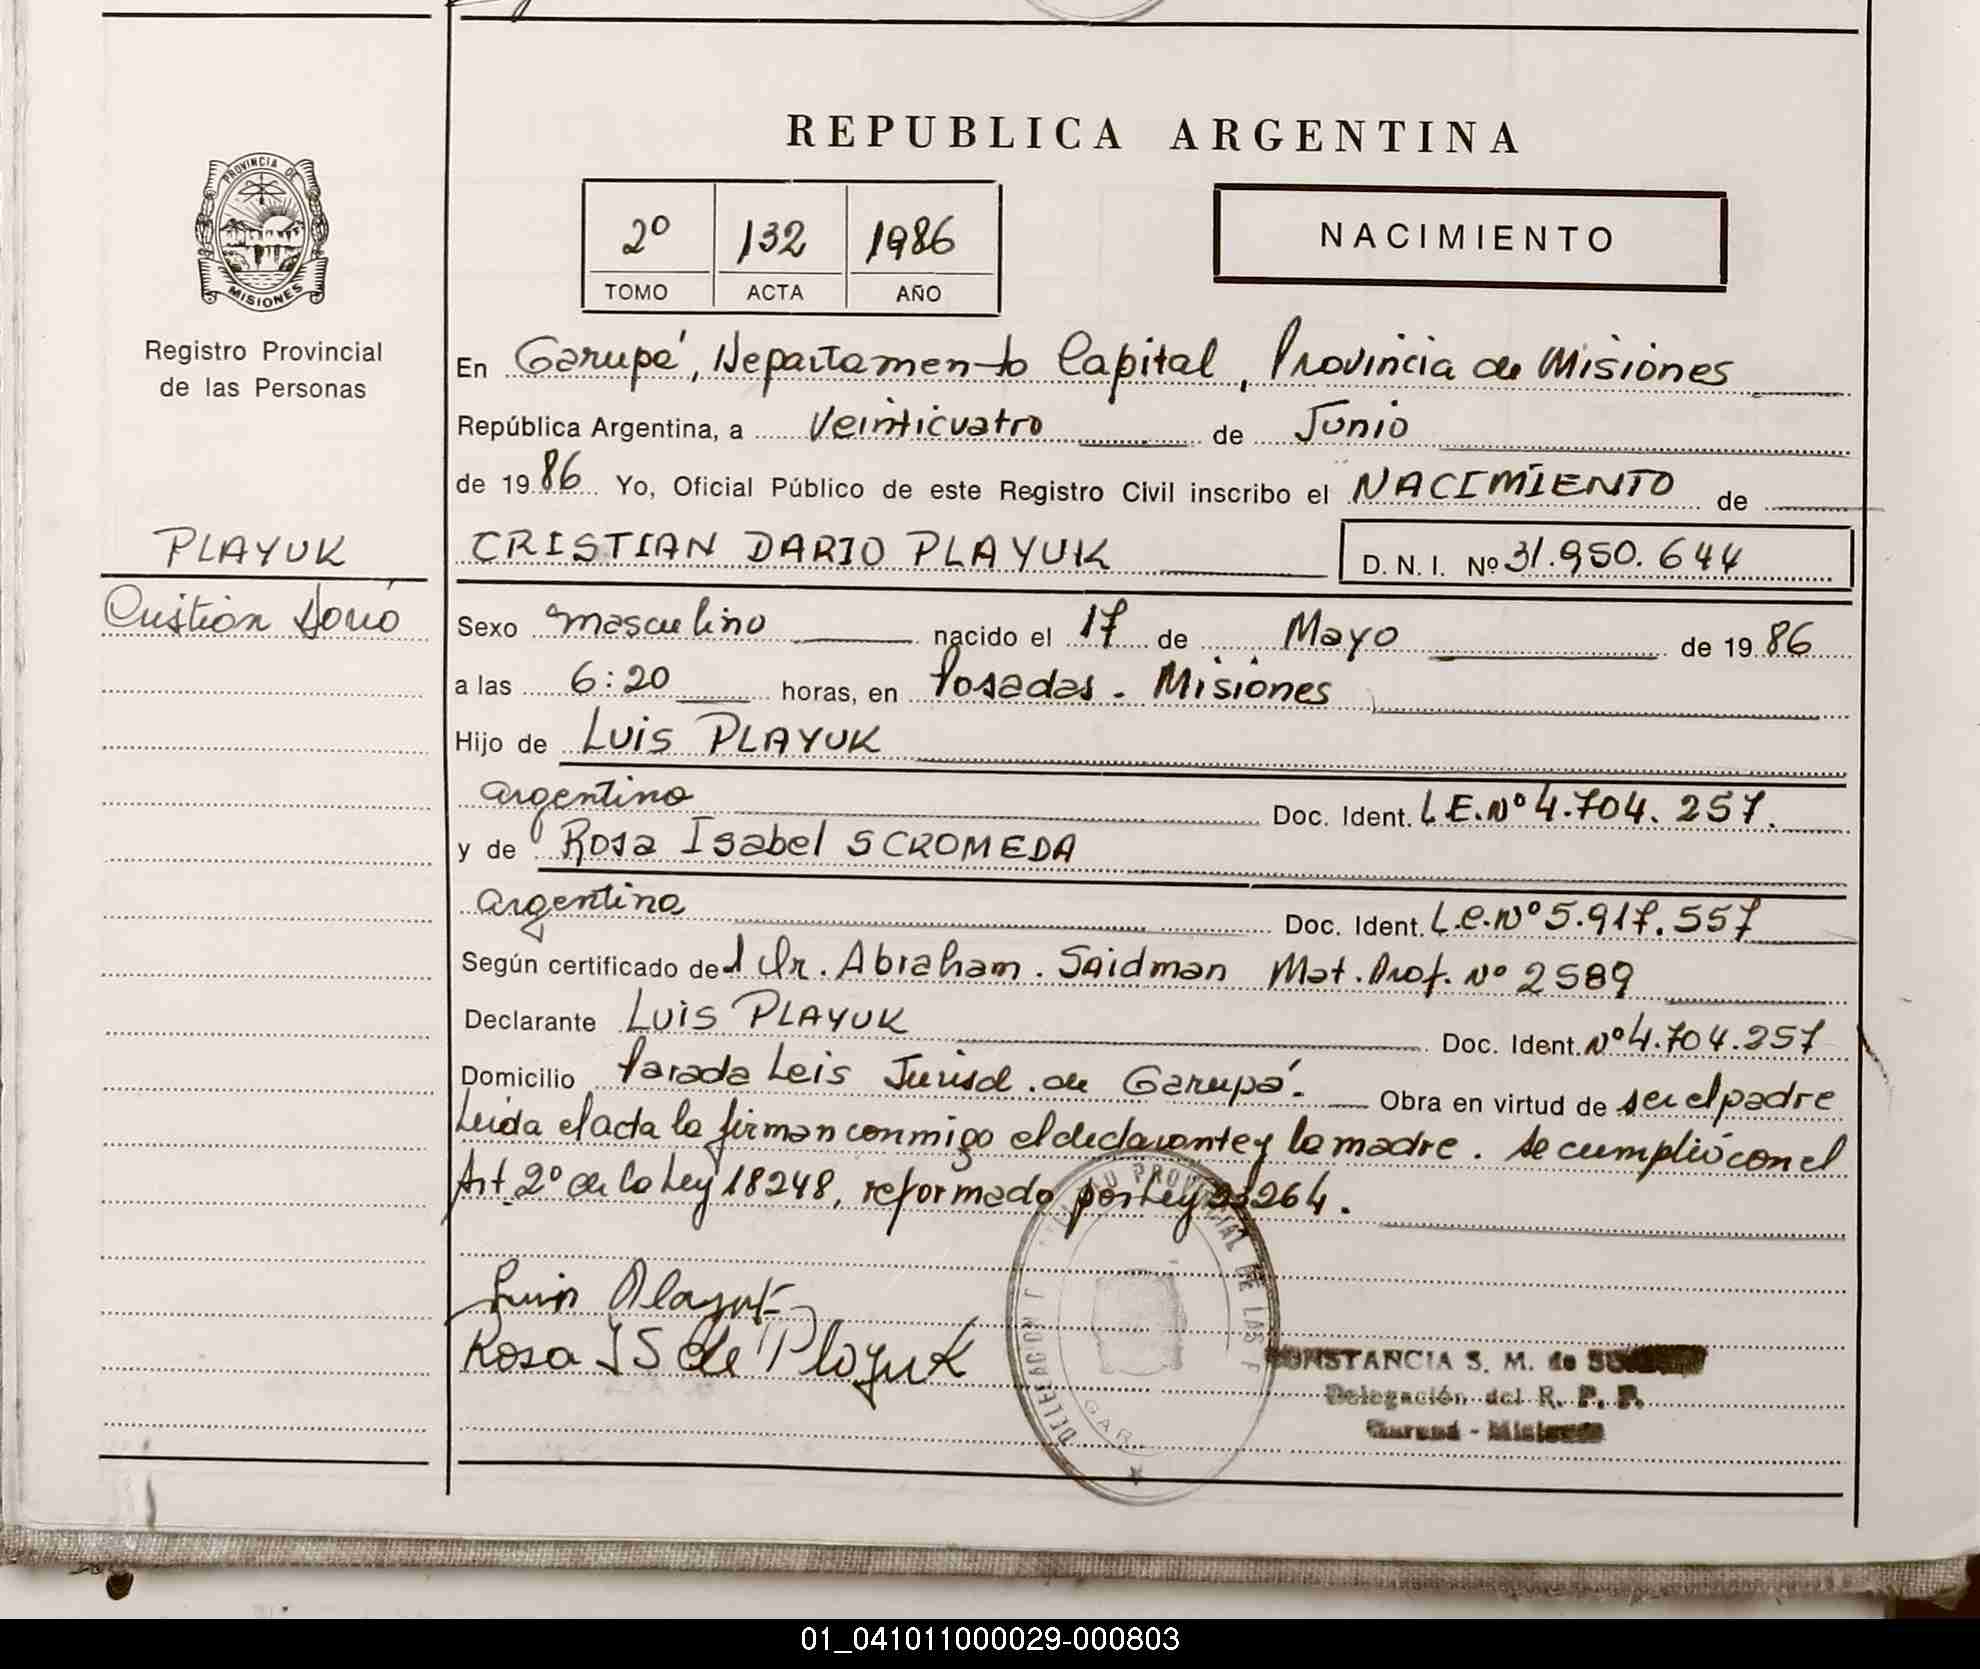 REPUBLICA ARGENTINA
PROVINCIA DE
MISIONES
Registro Provincial
de las Personas
2º 132 1986
TOMO ACTA AÑO
NACIMIENTO
En Garupá, Departamento Capital, Provincia de Misiones
República Argentina, a Veinticuatro de Junio
de 1986 Yo, Oficial Público de este Registro Civil inscribo el NACIMIENTO de
PLAYUK
CRISTIAN DARIO PLAYUK D. N. I. Nº 31.950.644
Cristian Darío
Sexo masculino nacido el 17 de Mayo de 1986
a las 6:20 horas, en Posadas - Misiones
Hijo de Luis PLAYUK
argentino Doc. Ident. L.E. Nº 4.704.257.
y de Rosa Isabel SCROMEDA
argentina Doc. Ident. L.C. Nº 5.917.557
Según certificado del Dr. Abraham. Saidman Mat. Prof. Nº 2589
Declarante Luis PLAYUK Doc. Ident. Nº 4.704.257
Domicilio Parada Leis Jurisd. de Garupá. Obra en virtud de ser el padre
Leida el acta la firman conmigo el declarante y la madre. Se cumplió con el
Art. 2º de la Ley 18248, reformado por Ley 23264.
Luis Playuk
Rosa IS de Playuk
DELEGACION REGISTRO PROVINCIAL DE LAS P
GAR
CONSTANCIA S. M. de
Delegación del R. P. P.
Garupá - Misiones
01_041011000029-000803